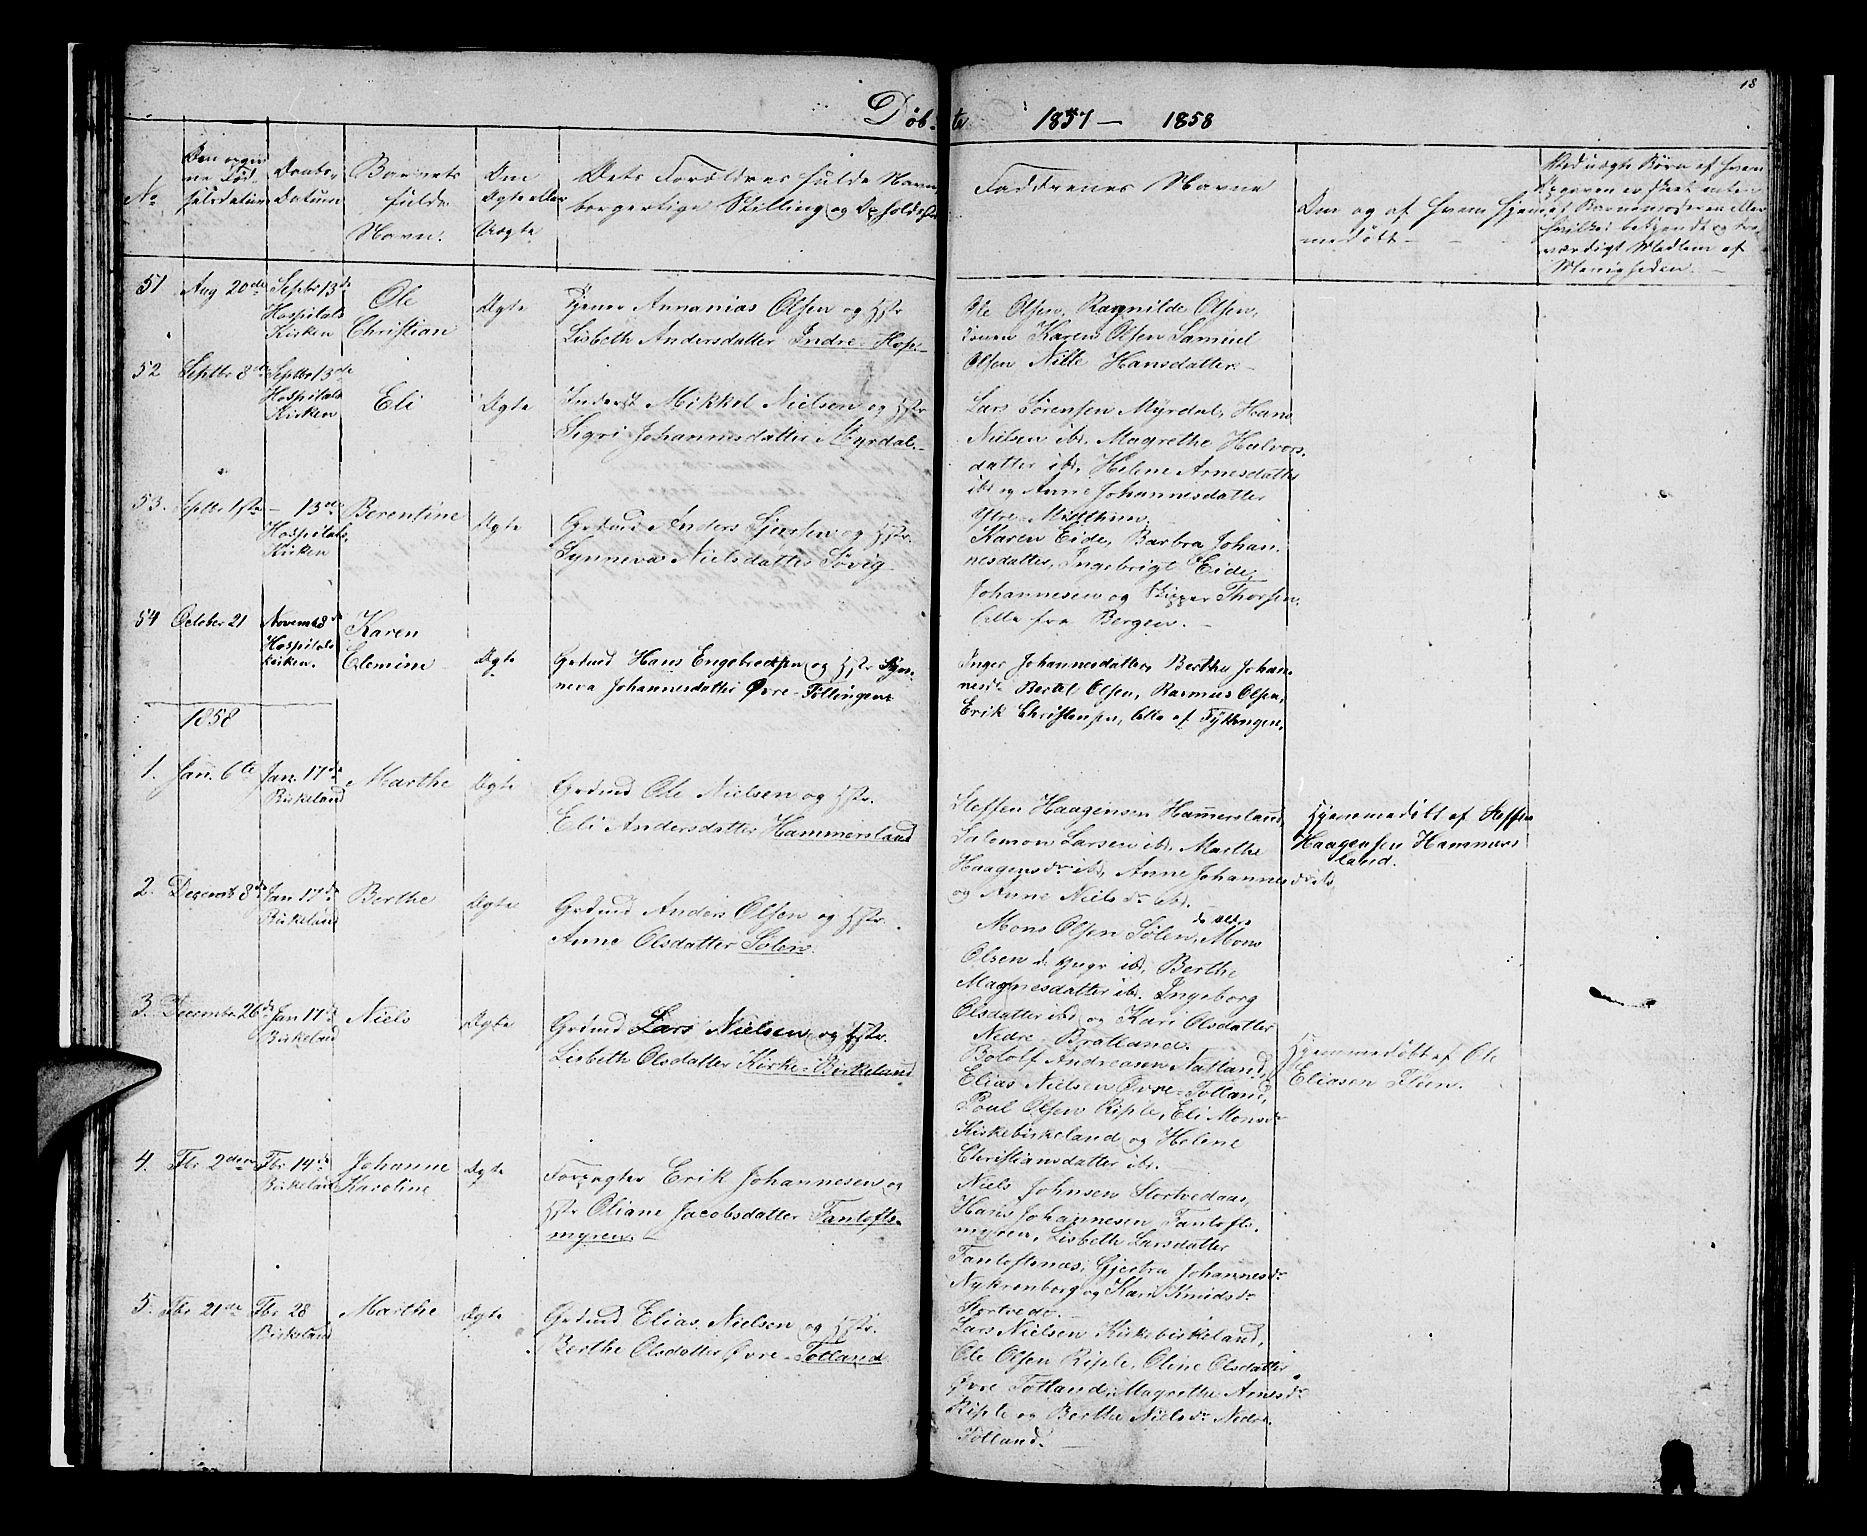 18
Døbte 1857 — 1858
No
Den
Fød
selsdatum
Daabs-
Datum
Barnets
fulde
Navn.
Om
Ægte eller
Uægte
Dets Forældres fulde Navn
borgerlige Stilling og Opholdsst
Faddrenes Navne
Om og af hvem hjem̄e
medøbt
Ved uægte Børn af hvem
Opgaven er skeet
Barnemoderen eller
hvilke betjende
værdigt Medlem af
Menigheden.
51 Aug 20de Septbr 13de
Hospitals
Kirken
Ole
Christian
Ægte
Annanias Olsen og Hstr
Lisbeth Andersdatter Indre-Hop.
Ole Olsen, Ragnilde Olsen,
Karen Olsen Samuel
Olsen Nille Hansdatter.
52 Septbr 8de Septbr 13de
Hospitals
Kirken
Eli
Ægte
Inderst Mikkel Nielsen og Hstr
Sigri Johannesdatter Myrdal.
Lars Sørensen Myrdal, Hans
Nielsen ibd. Magrethe Halvors-
datter ibd, Helene Arnesdatter
ibd og Anne Johannesdatter
Ytre-Midthun.
53. Septbr 1ste — 13de
Hospitals
Kirken
Berentine
Ægte
Grdmd Anders og Hstr.
Synneva Nielsdatter Søvig
Karen Eide, Barbra Johan-
nesdatter, Ingebrigt Eide,
Johannesen og Skipper Thorsen,
alle fra Bergen.
54 October 21 Novemb 8de
Hospitals
kirken.
Karen
Elemine
Ægte
Grdmd Hans Engebredsen og Hstr Syn-
neva Johannesdatter Øvre-Føllingen
Inger Johannesdatter, Berthe Johan-
nesdr Bertel Olsen, Rasmus Olsen,
Erik Christensen, alle af Fyllingen.
1858
1. Jan. 6te Jan. 17de
Birkeland
Marthe
Ægte
Grdmd Ole Nielsen og Hstr.
Eli Andersdatter Hammersland
Steffen Haagensen Ham̄ersland,
Salomon Larsen ibd. Marthe
Haagensdr ibd, Anne Johannesdr ibd.
og Anne Nielsdr ibd.
Hjemmedøbt af Steffen
Haagensen Hammers
land.
2. Decemb 8de Jan 17de
Birkeland
Berthe
Ægte
Grdmd Anders Olsen og Hstr.
Anne Olsdatter Sølen.
Mons Olsen Sølen, d. ældre Mons
Olsen d. yngr ibd, Berthe
Magnesdatter ibd. Ingeborg
Olsdatter ibd og Kari Olsdatter
Nedre-Bratland.
3. Decembr 26de Jan 17de
Birkeland
Niels
Ægte
Grdmd Lars Nielsen og Hstr.
Lisbeth Olsdatter Kirke-Birkeland
Botolf Andreasen Natland,
Elias Nielsen Øvre-Totland,
Poul Olsen Riple, Eli Monsdr
Kirkebirkeland og Helene
Christiansdatter ibd.
Hjemmedøbt af Ole
Eliasen Steen.
4. Fbr 2den Fbr 14de
Birkeland
Johanne
Karoline
Ægte
Forpagter Erik Johannesen og
Hstr Oliane Jacobsdatter Fantofts-
myren.
Niels Johnsen Stortvedaas,
Hans Johannesen Fantoft-
myren, Lisbeth Larsdatter
Fantoftenæs, Gjertru Johannesdr
Nykronborg og Kari Knudsdr
Stortvedt.
5. Fbr 21de Fbr 28
Birkeland
Marthe
Ægte
Grdmd Elias Nielsen og Hstr.
Berthe Olsdatter Øvre-Totland
Lars Nielsen Kirkebirkeland,
Ole Olsen Riple, Oline Olsdatter
Øvre Totland, Magrethe Arnesdr
Riple og Berthe Nielsdr Nedre
Totland.